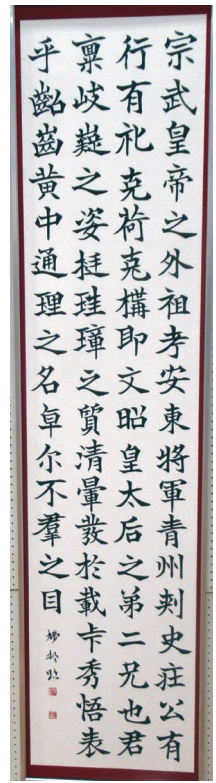 宗武皇帝之外祖考安東將軍青州刺史莊公有
行有礼克荷克構即文昭皇太后之弟二兄也君
稟岐嶷之姿挺珪璋之質清暈發於載卡秀悟表
乎齠齒黄中通理之名卓尔不羣之目